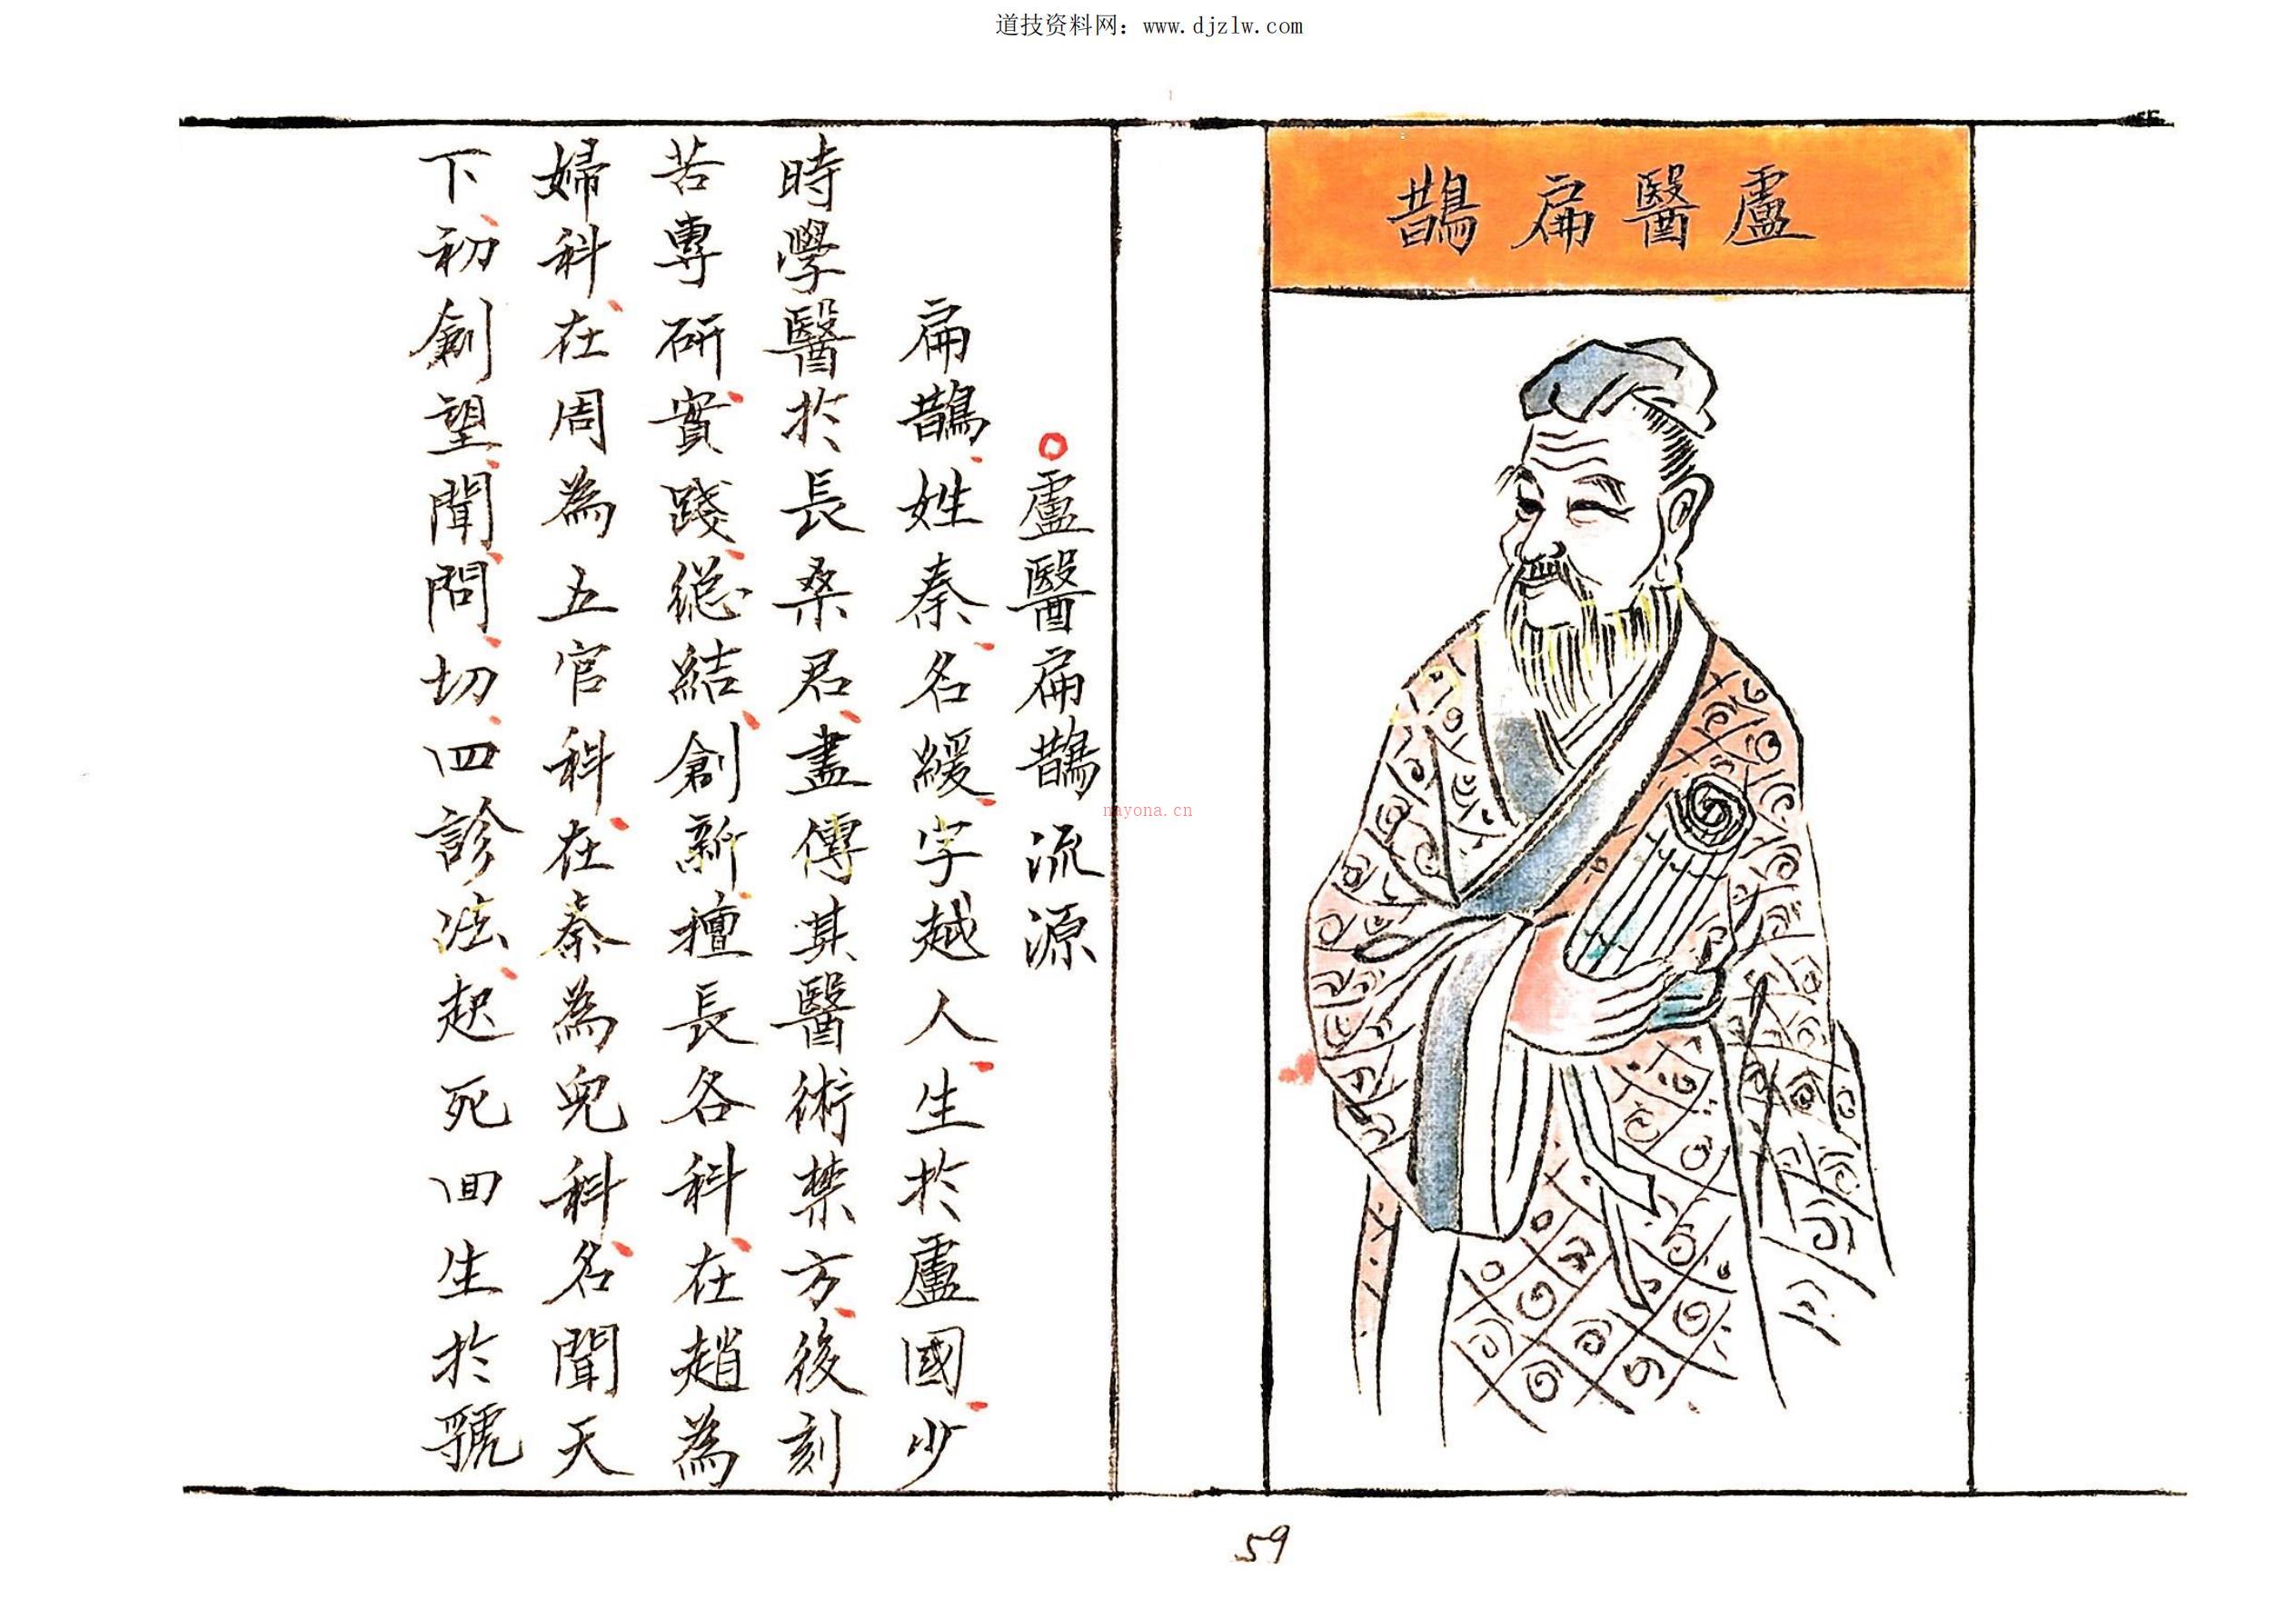 道技资料网：www.djzlw.com
盧醫扁鵲
盧醫扁鵲流源
扁鵲、姓秦、名緩、字越人、生於盧國、少
時學醫於長桑君、盡傳其醫術禁方、後刻
苦專研、實踐、總結、創新、擅長各科、在趙為
婦科、在周為五官科、在秦為兒科、名聞天
下、初創望、聞、問、切、四診法、起死回生於虢
nayona.cn
59